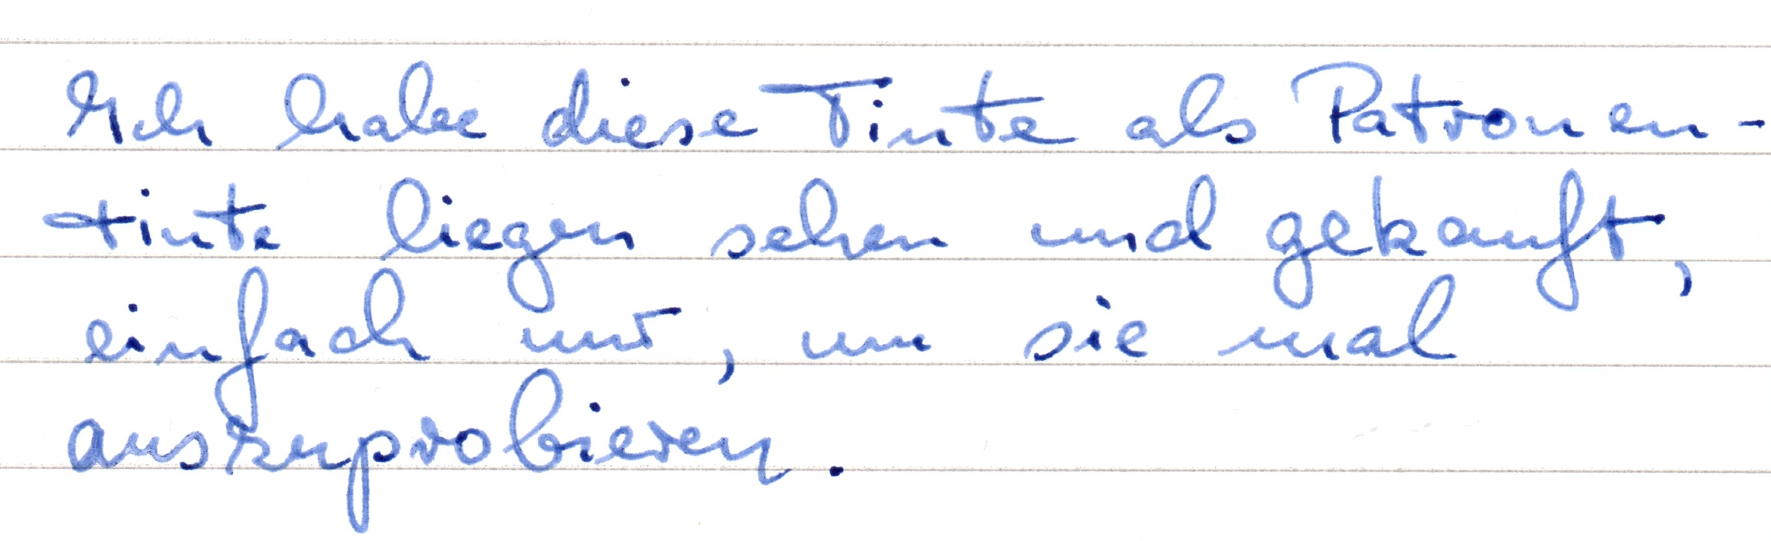 Ich habe diese Tinte als Patronen-
tinte liegen sehen und gekauft,
einfach nur, um sie mal
auszuprobieren.